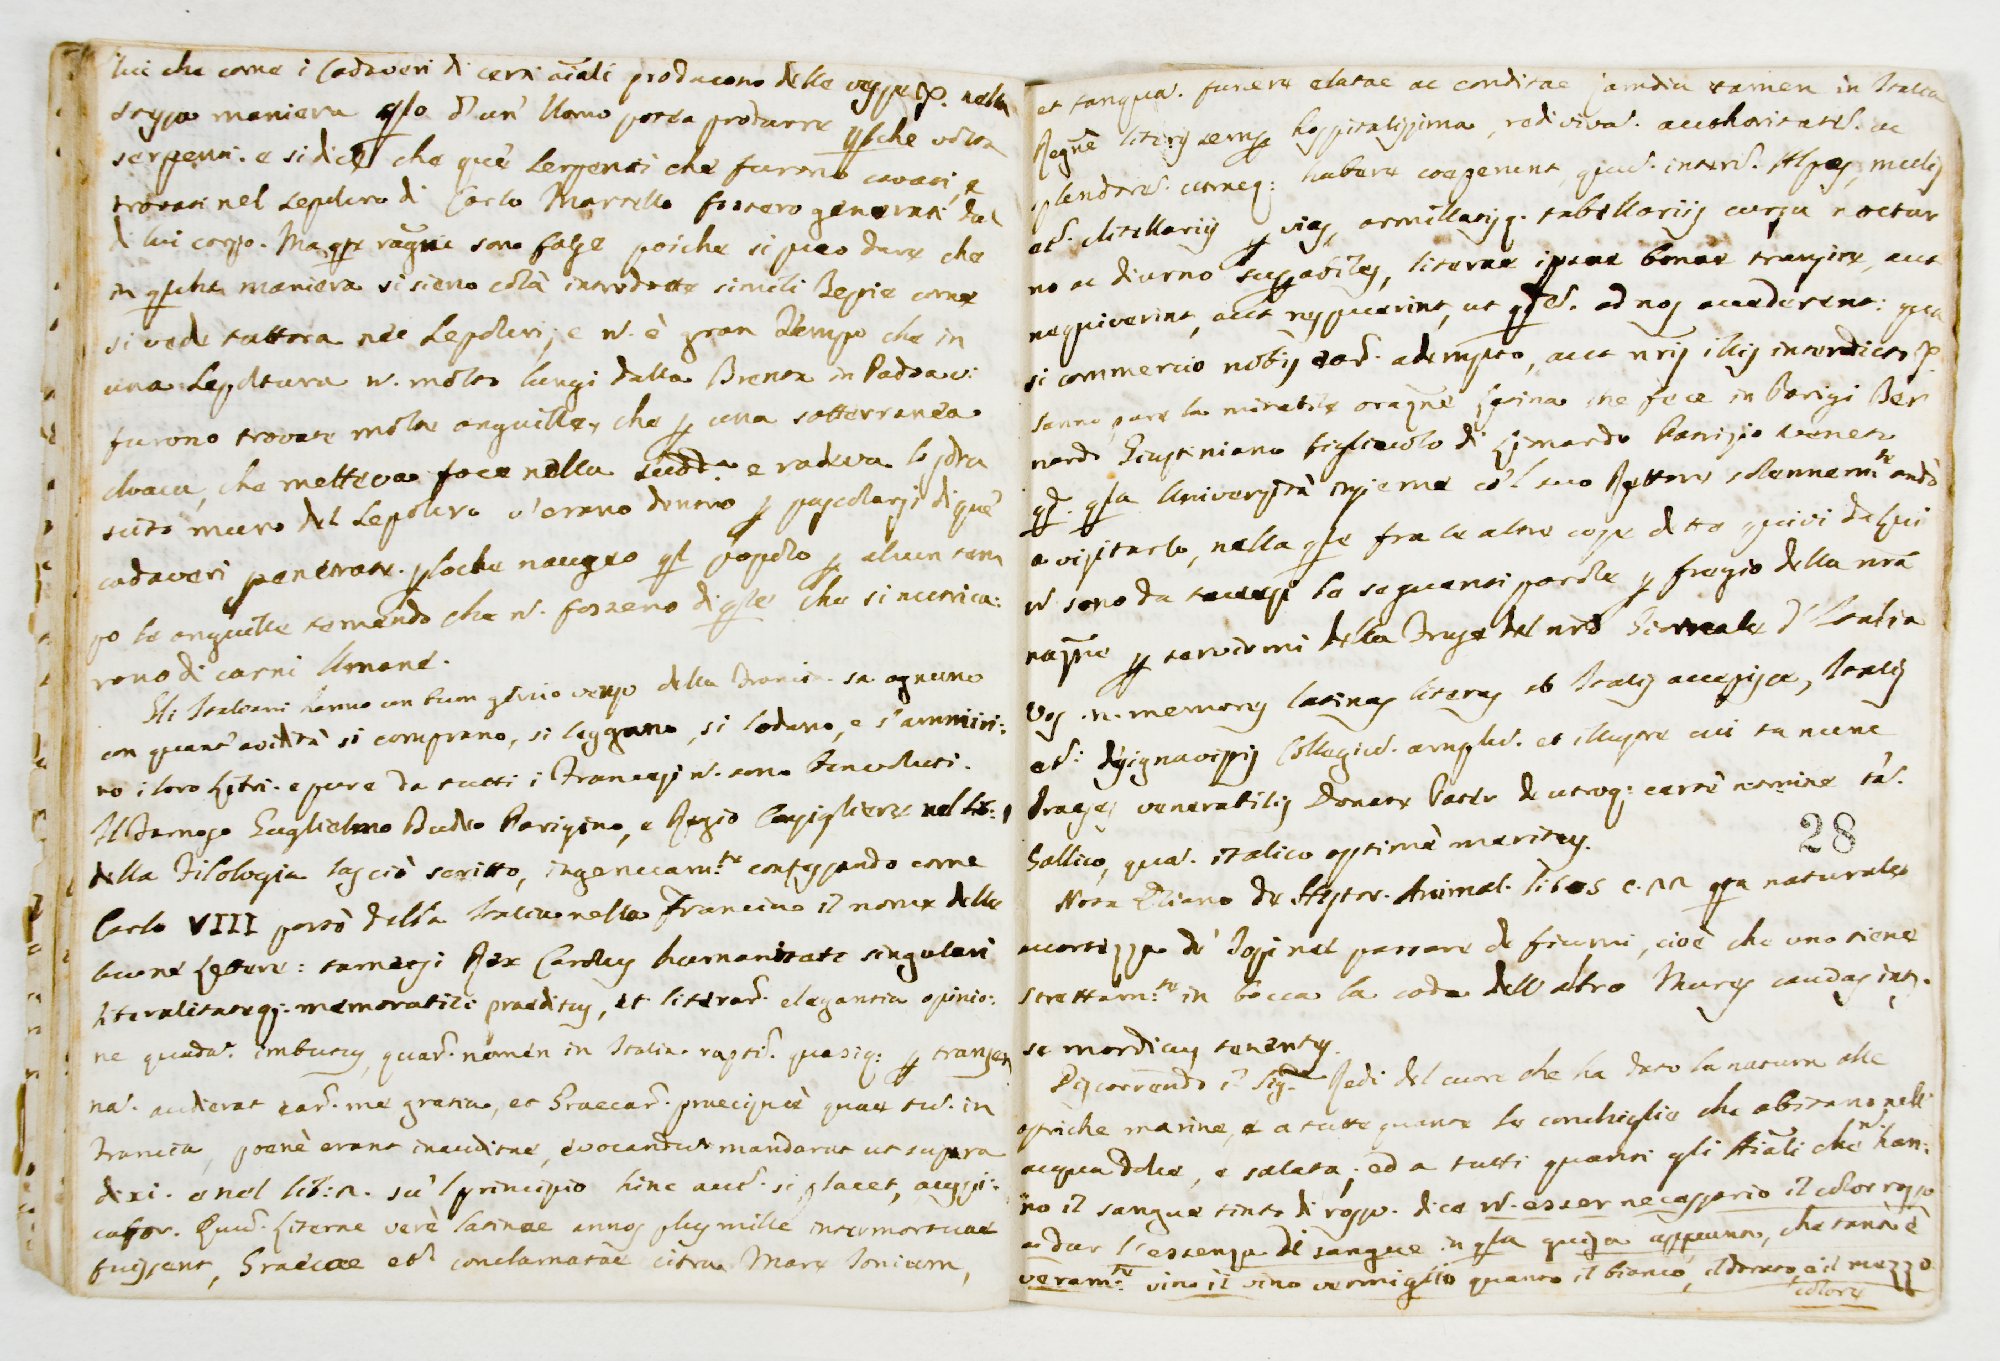 lui che come i Cadaveri di certi aiali producono delle vespe &. nella
stessa maniera qsto d'un Uomo possa produrre qsche volta
serpenti. e si dice che què Serpenti che furono cavati, e
trovati nel sepolcro di Carlo Martello fossero generati dal
di lui corpo. Ma qste ragni sono false poiche si può dare che
in qsche maniera si sieno colà introdotte simili Bestie come
si vede tuttora nei Sepolcri; e n. è gran tempo che in
una Sepoltura n. molto lungi dalla Brenta in Padova
furono trovate molte anguille, che p una sotterranea
cloaca, che metteva foce nella e radeva lo
muro del Sepolcro v'erano dentro p pascolarsi di què
cadaveri penetrate. ploche nauseò qsl popolo p alcun tem
po le anguille temendo che n. fossero di qste che si nutrica:
rono di carni Umane.
Gli Italiani hanno un buon genio verso della Francia. sa ognuno
con quant'avidità si comprano, si leggano, si lodano, e s'ammiri:
no i loro Libri. e pure da tutti i Francesi n. sono benvoluti.
Il Famoso Guglielmo Budeo Parigino, e Regio Consigliere nel lib: 1
della Filologia lasciò scritto, ingenuam.te confessando come
Carlo VIII portò dalla Italia nella Francia il nome delle
buone Lettere: tametsi Rex Carolus humanitate singulari
liberalitateq; memorabili praeditus, et literar. elegantia opinio:
ne quada. imbutus, quar. nomen in Italia raptì. quasiq: p transen
na. audierat ear. me gratia, et Graecar. praecipuè quae tu. in
Francia, poenè erant inauditae, evocandu mandarat ut supra
dixi. e nel lib: 2. sù'l principio hinc aut. si placet, auspi:
cabor. Quu. Literae verè latinae annos plus mille intermortuae
fuissent, Graecae et. conclamatae citra Mare Ionium,
et tanqua. funere elatae ac conditae jamdiu tamen in Italia
Regne literis semp hospitalissima, rediviva. authoritate. ac
splendore. utrinq: habere coeperunt, quu. interi. Alpes, mulis
et. clitellariis p vias, armillatisq. tabellariis cursu noctur
no ac diurno superabiles, literae ipsae bonae transire, aut
nequiverint, aut respuerint, ut qd. ad nos accederent: qua
si commercio nobis ear. adempto, aut nris illis interdicto &.
sanno pure la mirabile oragne latina che fece in Parigi Ber
nardo Giustiniano figliuolo di Leonardo Patrizio veneto
qd. qsta Università insieme co'l suo Rettore solennem.te andò
a visitarlo, nella qle fra le altre cose dette quivi da lui
n sono da tacersi le seguenti parole p fregio della nra
nazne p servirmi della Frase del nro Giornale d'Italia
Vos .n. memores latinas literas ab Italis accepisse, Italis
et. dsignavistis Collegiu. amplu. et illustre cui tu nunc
praees, venerabilis Donate Pater de utroq; certè nomine ta.
Gallico, qua. italico optimè meritus.
28
Nota Eliano de Hystor. Animal. lib. 5 c. 22 qsta naturale
accortezza de' Topi nel passare de fiumi, cioè che uno tiene
strettam.te in bocca la coda dell'altro Mures caudas int.
se mordicus tenentes.
Discorrendo il Sig.r Redi del cuore che ha dato la natura alle
ostriche marine, e a tutte quante le conchiglie che abitano nell'
acqua dolce, e salata; ed a tutti quanti gli Aiali che n han:
no il sangue tinto di rosso. dice n. esser necessario il color rosso
a dar l'essenza di sangue in qsta guisa appunto, che tant'è
veram.te vino il vino vermiglio quanto il bianco, il dorato, e il mezzo
colore